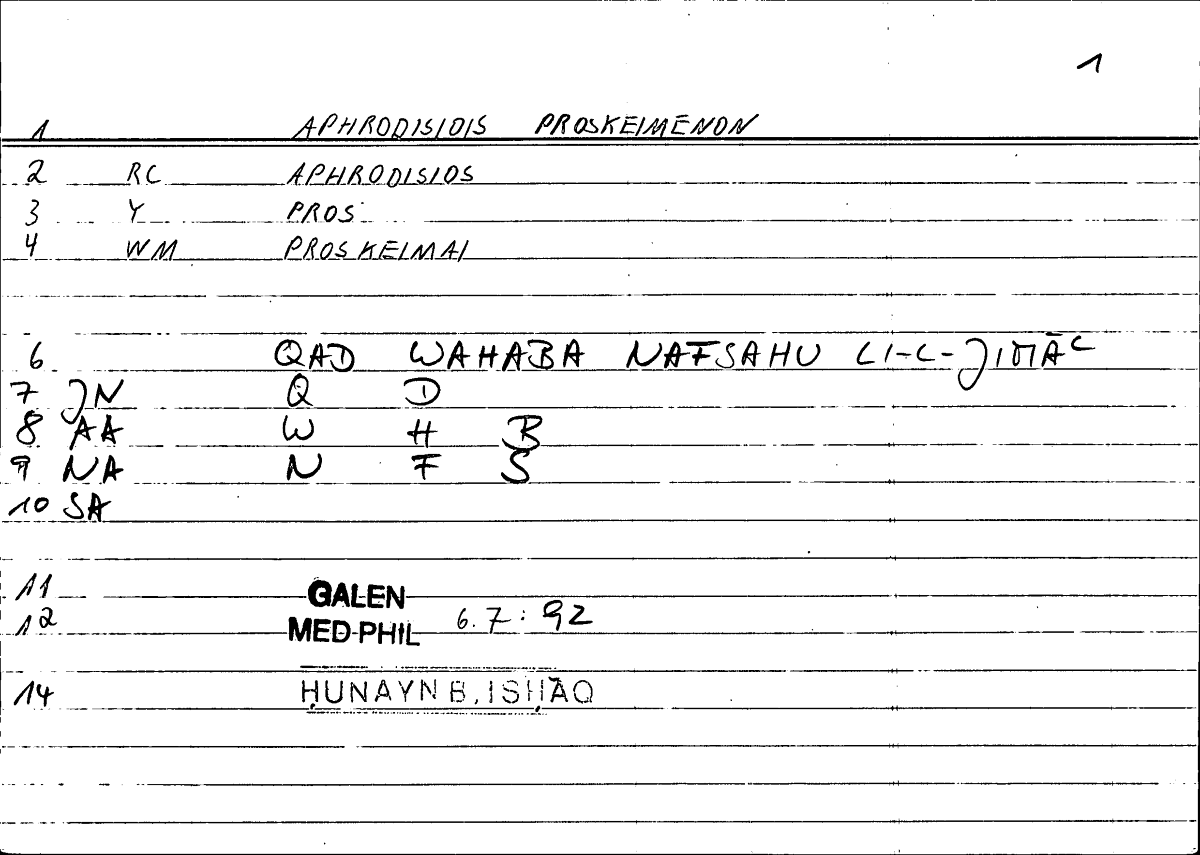 1
1 APHRODISIOIS PROSKEIMENON
2 RC APHRODISIOS
3 Y PROS
4 WM PROSKEIMAI
6 QAD WAHABA NAFSAHU LI-L-JIMĀC
7 JN Q D
8 AA W H B
9 NA N F S
10 SA
11 GALEN
12 MED-PHIL 6.7:92
14 ḤUNAYN B. ISḤĀQ